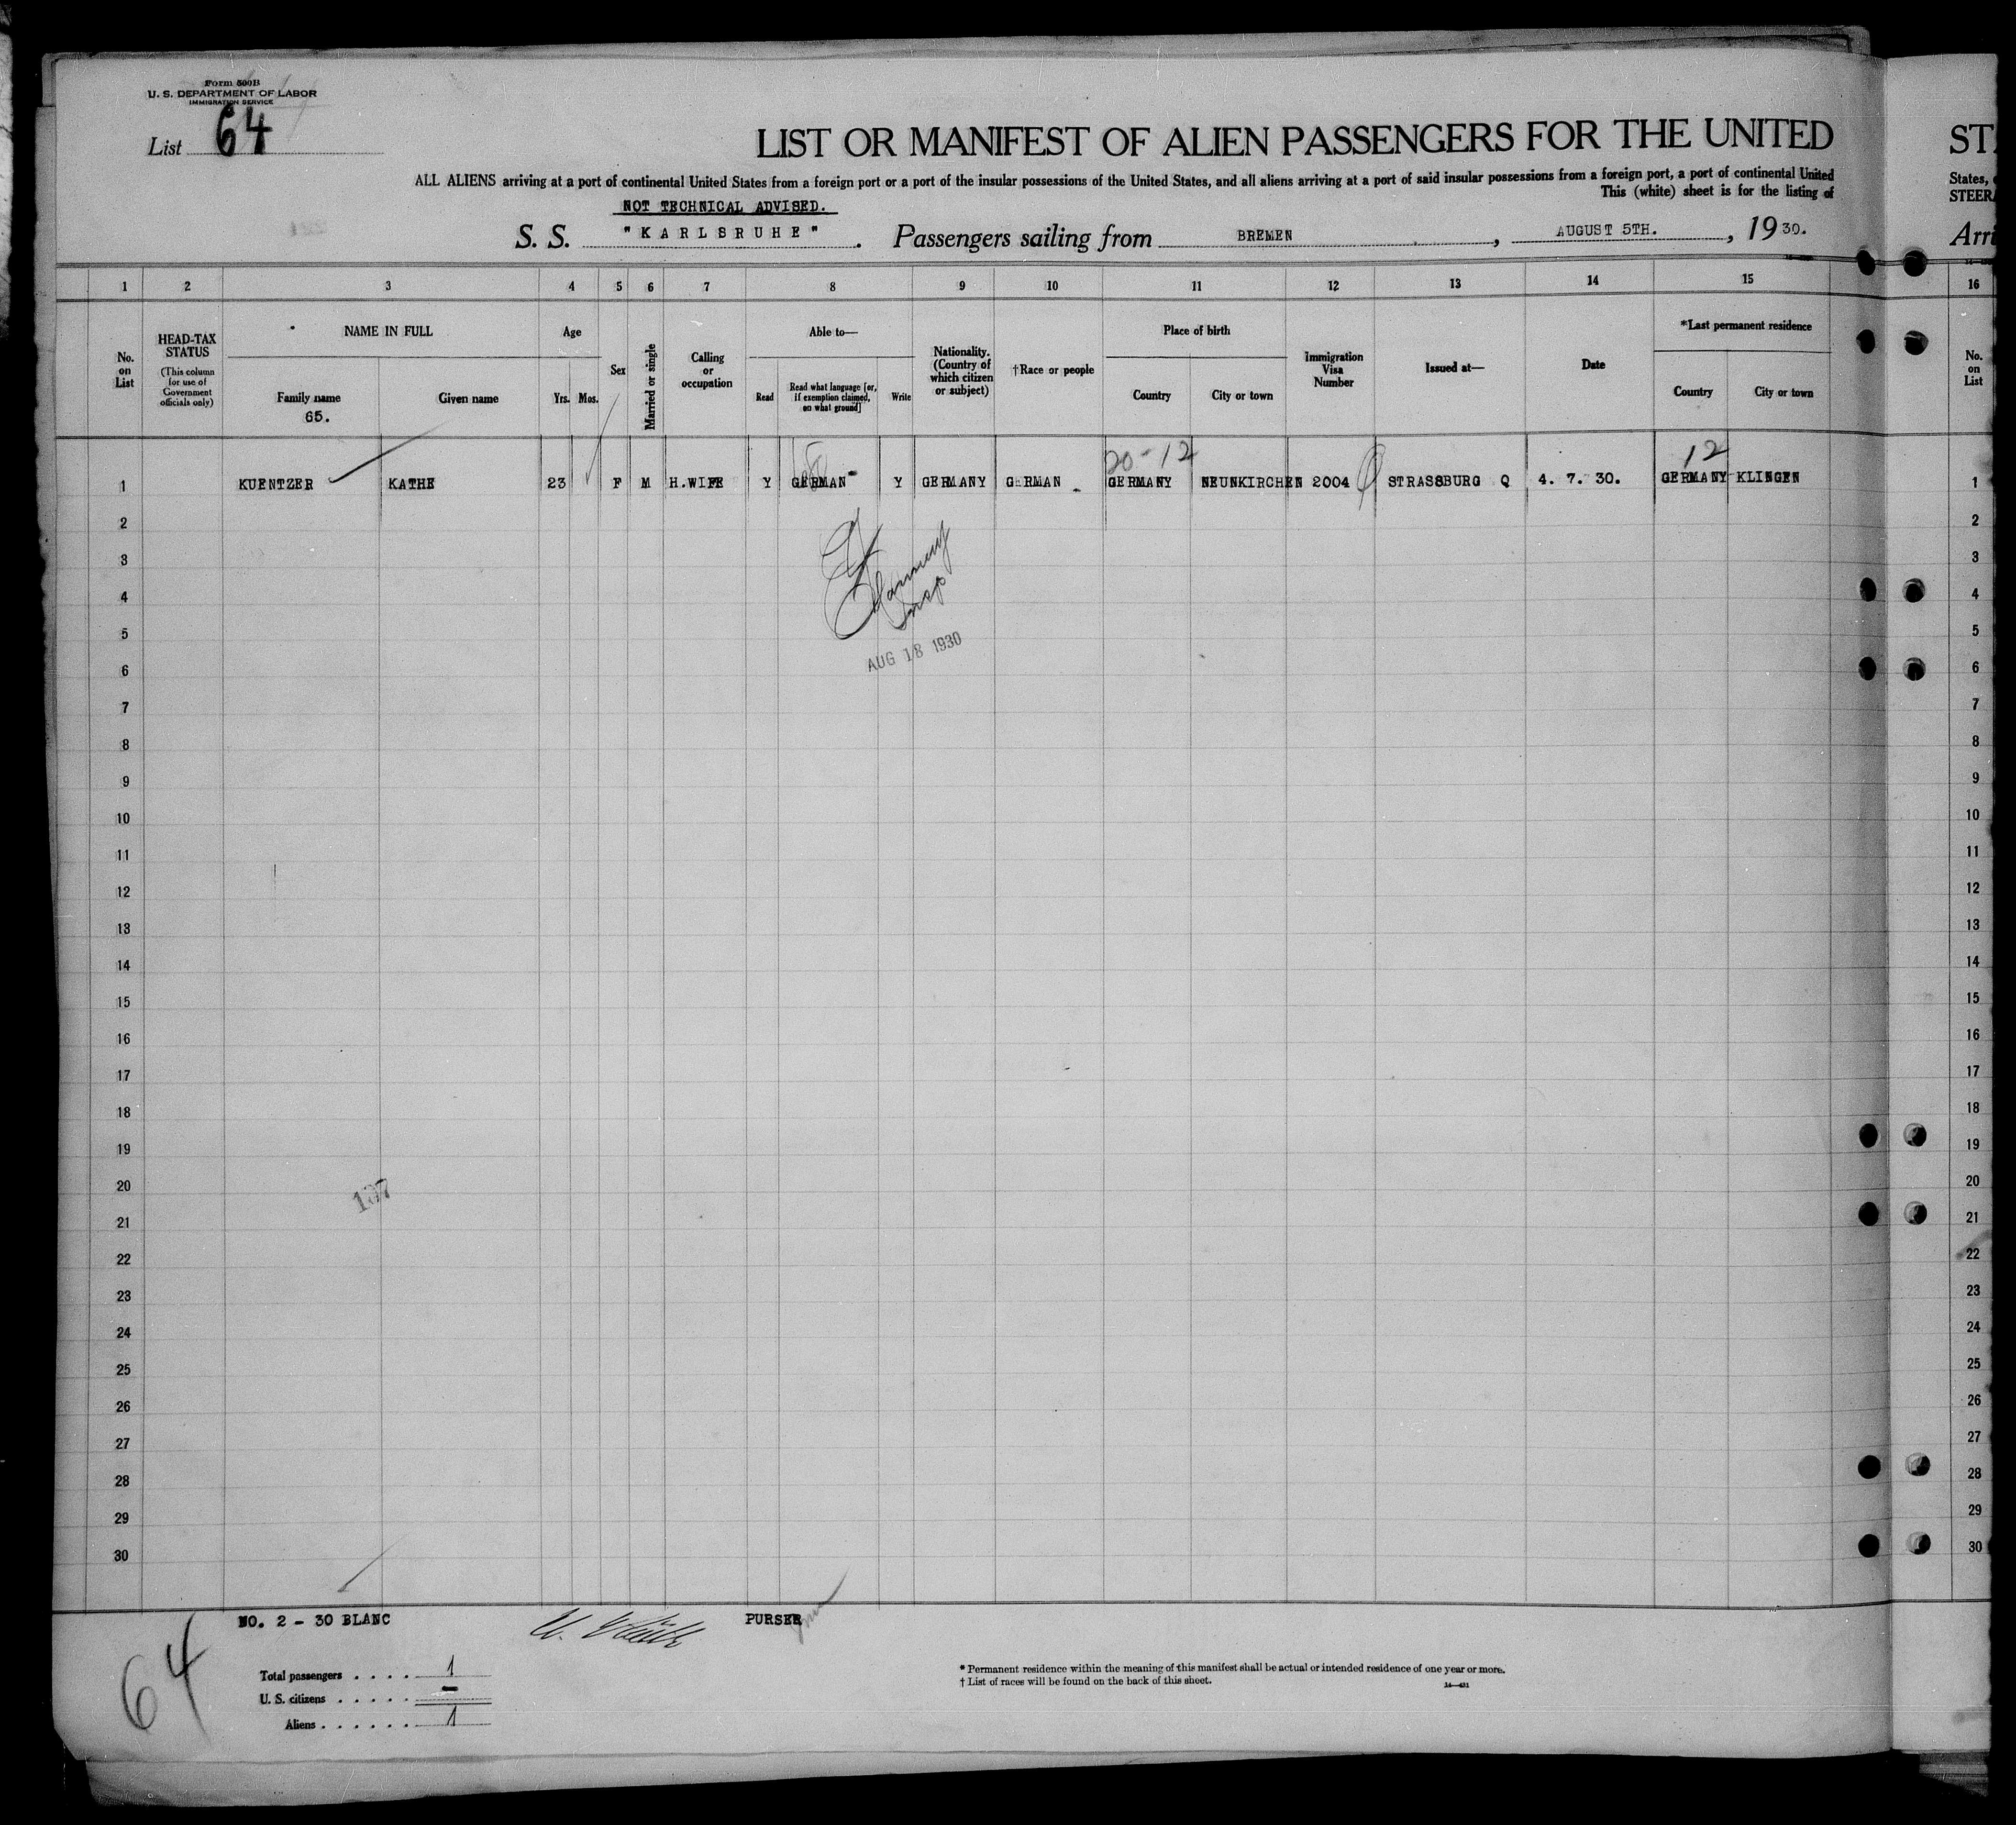 Form 500B
U. S. DEPARTMENT OF LABOR
IMMIGRATION SERVICE
List 64
LIST OR MANIFEST OF ALIEN PASSENGERS FOR THE UNITED
ALL ALIENS arriving at a port of continental United States from a foreign port or a port of the insular possessions of the United States, and all aliens arriving at a port of said insular possessions from a foreign port, a port of continental United
This (white) sheet is for the listing of
NOT TECHNICAL ADVISED.
S. S. "KARLSRUHE". Passengers sailing from BREMEN, AUGUST 5TH., 1930.
ST
States,
STEER
Arri
1 2 3 4 5 6 7 8 9 10 11 12 13 14 15 16
No. on List
HEAD-TAX STATUS
(This column for use of Government officials only)
NAME IN FULL
Family name
65.
Given name
Age
Yrs. Mos.
Sex
Married or single
Calling or occupation
Able to—
Read
Read what language [or, if exemption claimed, on what ground]
Write
Nationality. (Country of which citizen or subject)
†Race or people
Place of birth
Country
City or town
Immigration Visa Number
Issued at—
Date
*Last permanent residence
Country
City or town
No. on List
20-12 12
1 KUENTZER KATHE 23 F M H.WIFE Y GERMAN Y GERMANY GERMAN GERMANY NEUNKIRCHEN 2004 STRASSBURG Q 4. 7. 30. GERMANY KLINGEN 1
2 2
3 3
4 4
5 5
Insp
AUG 18 1930
6 6
7 7
8 8
9 9
10 10
11 11
12 12
13 13
14 14
15 15
16 16
17 17
18 18
19 19
20 20
21 21
22 22
23 23
24 24
25 25
26 26
27 27
28 28
29 29
30 30
NO. 2 - 30 BLANC
PURSER
64
Total passengers . . . . 1
U. S. citizens . . . . . -
Aliens . . . . . . 1
* Permanent residence within the meaning of this manifest shall be actual or intended residence of one year or more.
† List of races will be found on the back of this sheet.
14—431